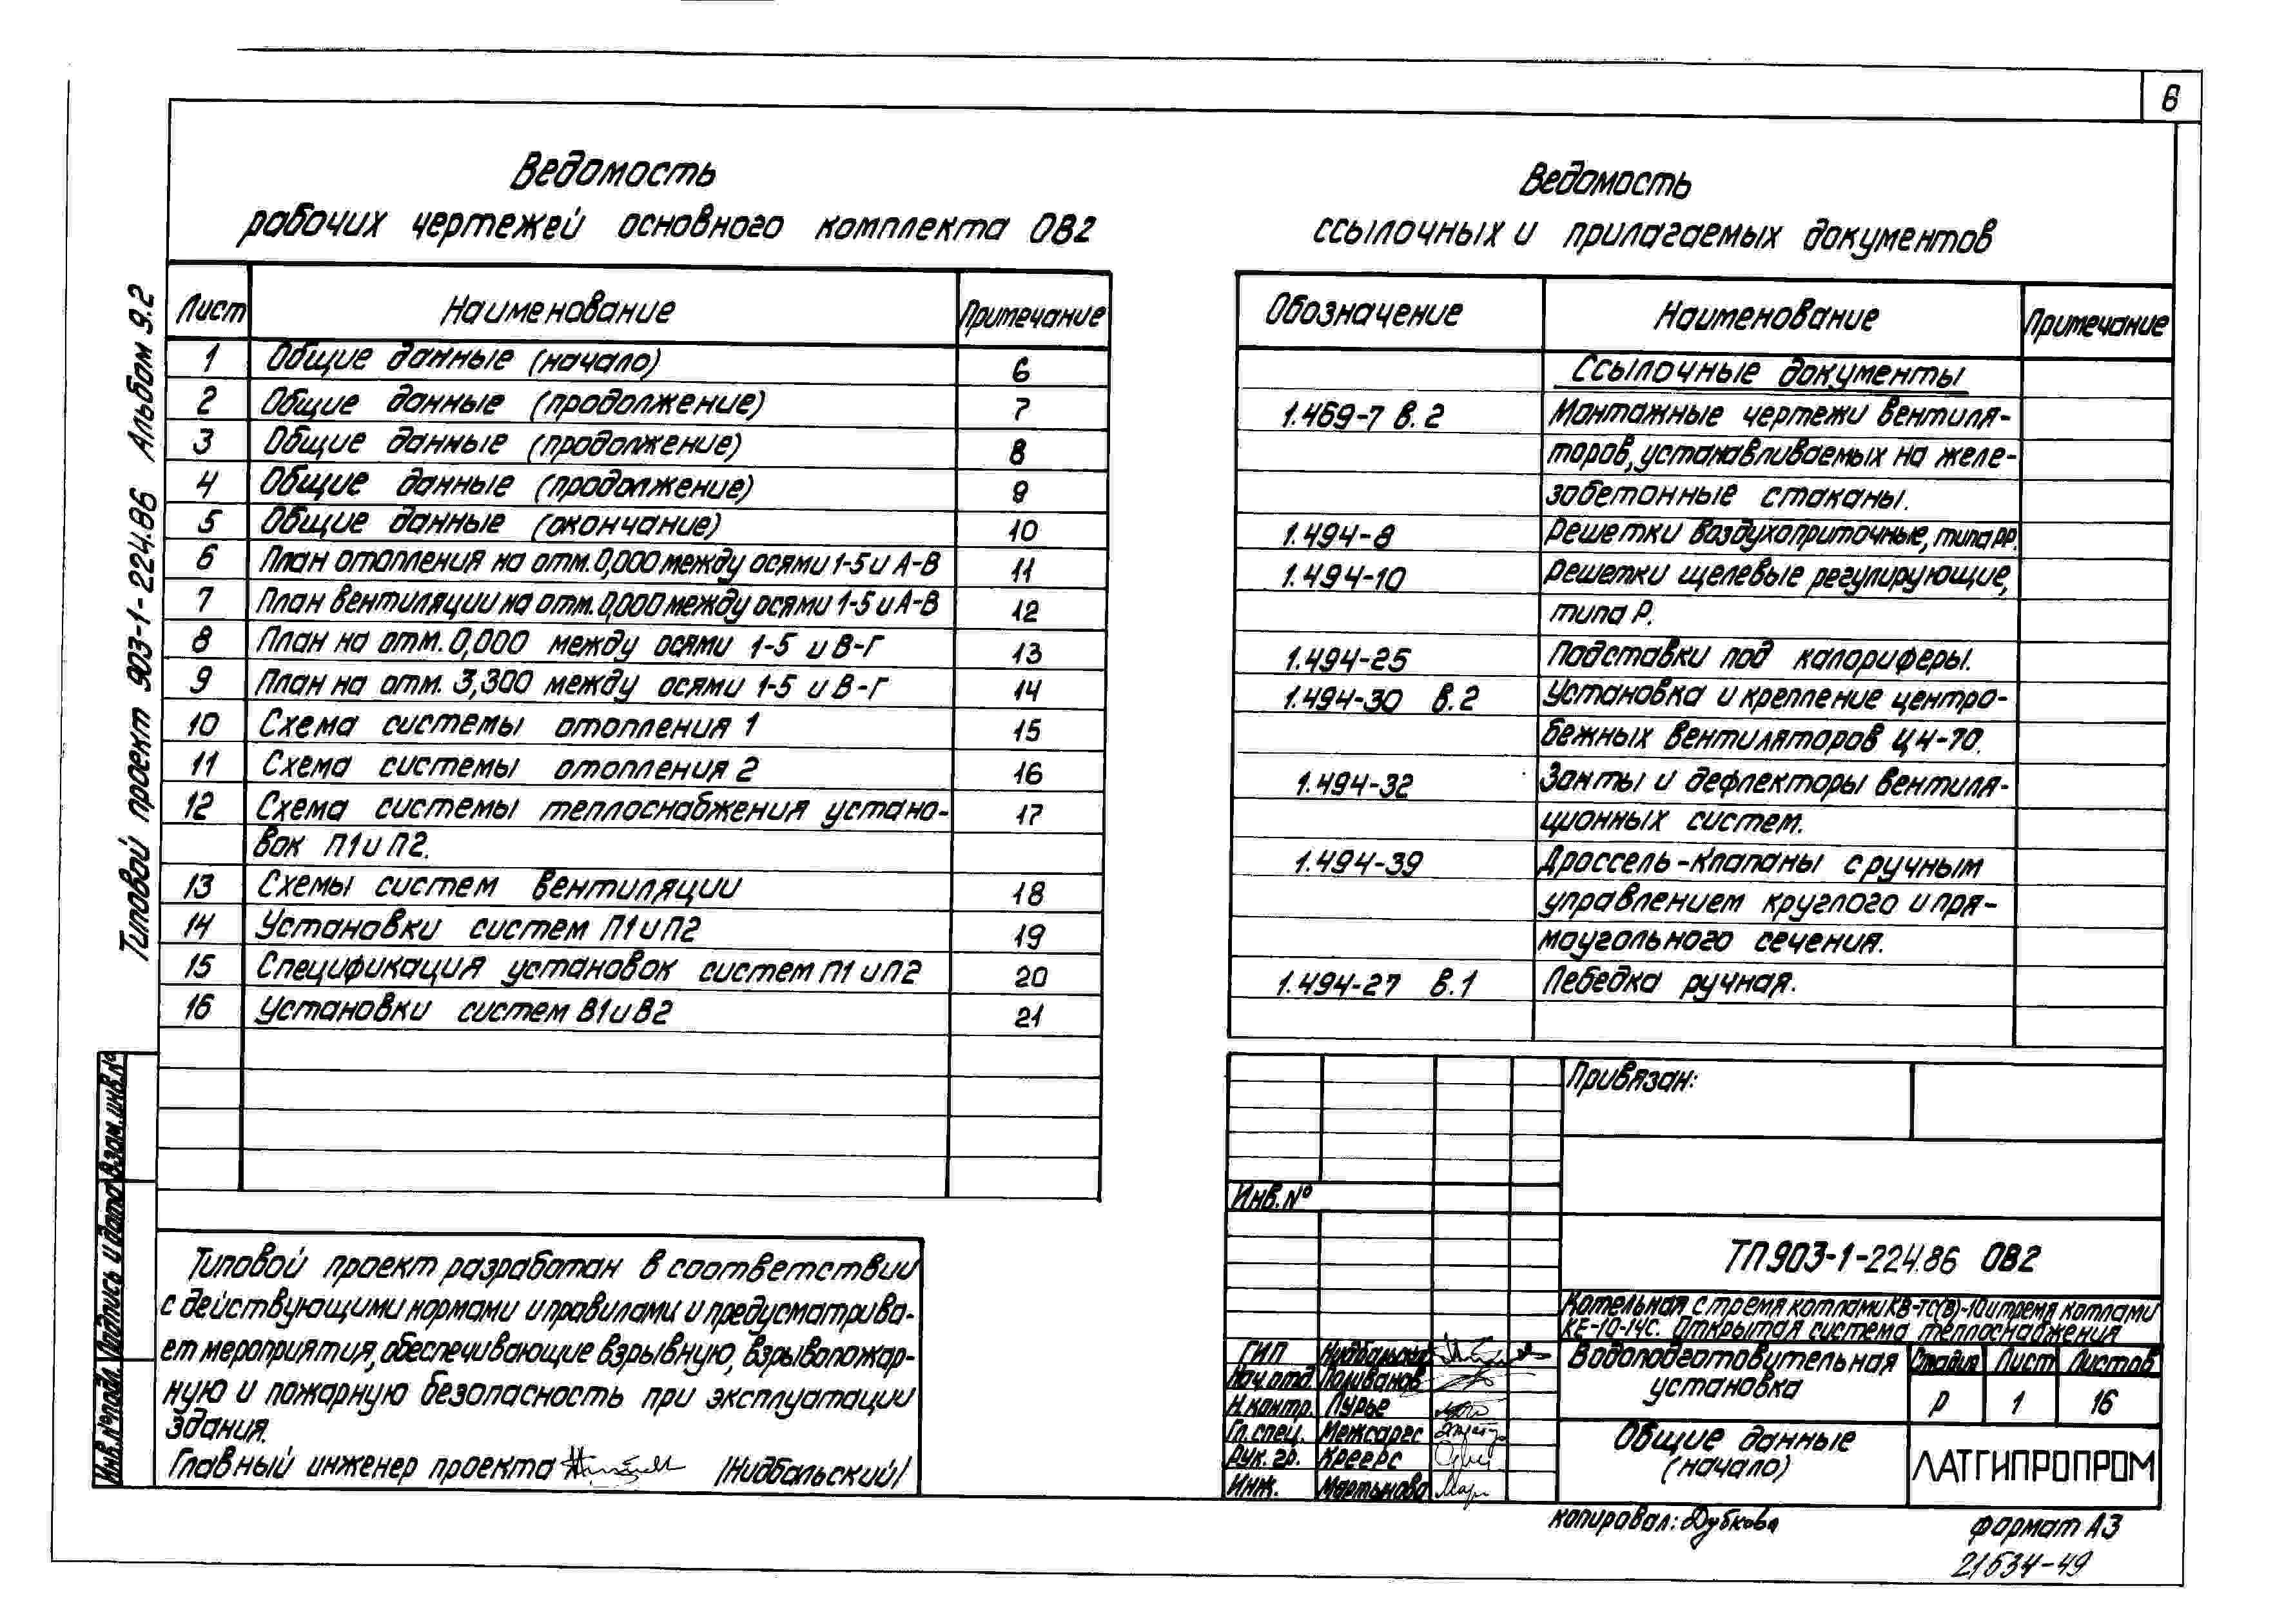 6
Ведомость
рабочих чертежей основного комплекта ОВ2
Лист Наименование Примечание
1 Общие данные (начало) 6
2 Общие данные (продолжение) 7
3 Общие данные (продолжение) 8
4 Общие данные (продолжение) 9
5 Общие данные (окончание) 10
6 План отопления на отм. 0,000 между осями 1-5 и А-В 11
7 План вентиляции на отм. 0,000 между осями 1-5 и А-В 12
8 План на отм. 0,000 между осями 1-5 и В-Г 13
9 План на отм. 3,300 между осями 1-5 и В-Г 14
10 Схема системы отопления 1 15
11 Схема системы отопления 2 16
12 Схема системы теплоснабжения устано- 17
вок П1 и П2.
13 Схемы систем вентиляции 18
14 Установки систем П1 и П2 19
15 Спецификация установок систем П1 и П2 20
16 Установки систем В1 и В2 21
Ведомость
ссылочных и прилагаемых документов
Обозначение Наименование Примечание
Ссылочные документы
1.469-7 в.2 Монтажные чертежи вентиля-
торов, устанавливаемых на желе-
зобетонные стаканы.
1.494-8 Решетки воздухоприточные, типа РР.
1.494-10 Решетки щелевые регулирующие,
типа Р.
1.494-25 Подставки под калориферы.
1.494-30 в.2 Установка и крепление центро-
бежных вентиляторов Ц4-70.
1.494-32 Зонты и дефлекторы вентиля-
ционных систем.
1.494-39 Дроссель-клапаны с ручным
управлением круглого и пря-
моугольного сечения.
1.494-27 в.1 Лебедка ручная.
Типовой проект 903-1-224.86 Альбом 9.2
Инв.№подл. Подпись и дата Взам.инв.№
Типовой проект разработан в соответствии
с действующими нормами и правилами и предусматрива-
ет мероприятия, обеспечивающие взрывную, взрывопожар-
ную и пожарную безопасность при эксплуатации
здания.
Главный инженер проекта /Нидбальский/
Привязан:
Инв.№
ТП 903-1-224.86 ОВ2
Котельная с тремя котлами КВ-ТС(В)-10 и тремя котлами
КЕ-10-14С. Открытая система теплоснабжения
ГИП Нидбальский
Нач.отд. Поливанов
Н.контр. Лурье
Гл.спец. Межсарес
Рук. гр. Креерс
Инж. Мартынова
Водоподготовительная
установка
Стадия Лист Листов
Р 1 16
Общие данные
(начало)
ЛАТГИПРОПРОМ
копировал: Дубкова
формат А3
21634-49